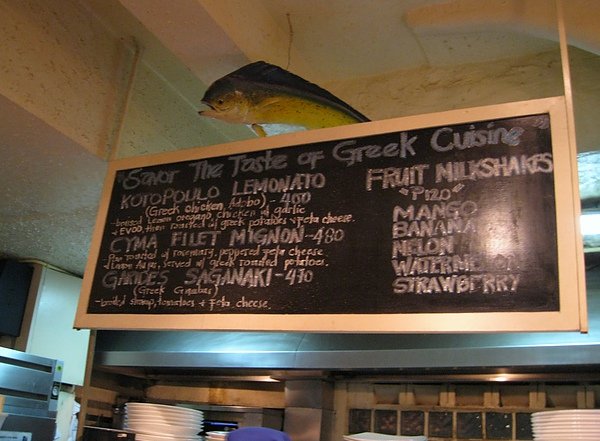 "Savor The Taste of Greek Cuisine"
KOTOPOULO LEMONATO
(Greek Chicken Adobo) - 460
- braised lemon oregano, chicken w/ garlic
& EVOO, then roasted w/ greek potatoes & feta cheese.
CYMA FILET MIGNON - 480
Pan roasted w/ rosemary, peppered feta cheese
served w/ greek roasted potatoes.
GARIDES SAGANAKI - 410
(Greek Gambas)
- broiled shrimp, tomatoes & feta cheese
FRUIT MILKSHAKES
"P120"
MANGO
BANANA
MELON
WATERMELON
STRAWBERRY